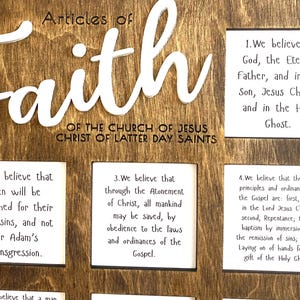 Articles of
Faith
OF THE CHURCH OF JESUS
CHRIST OF LATTER DAY SAINTS
1.We believe
God, the Ete
Father, and in
Son, Jesus Ch
and in the H
Ghost.
believe that
en will be
hed for their
sins, and not
r Adam's
nsgression.
3.We believe that
through the Atonement
of Christ, all mankind
may be saved, by
obedience to the laws
and ordinances of the
Gospel.
4.We believe that the
principles and ordinan
the Gospel are: first,
in the Lord Jesus C
second, Repentance; t
baptism by immersion
the remission of sins;
Laying on of hands f
gift of the Holy Gh
elieve that a man
We believe in the